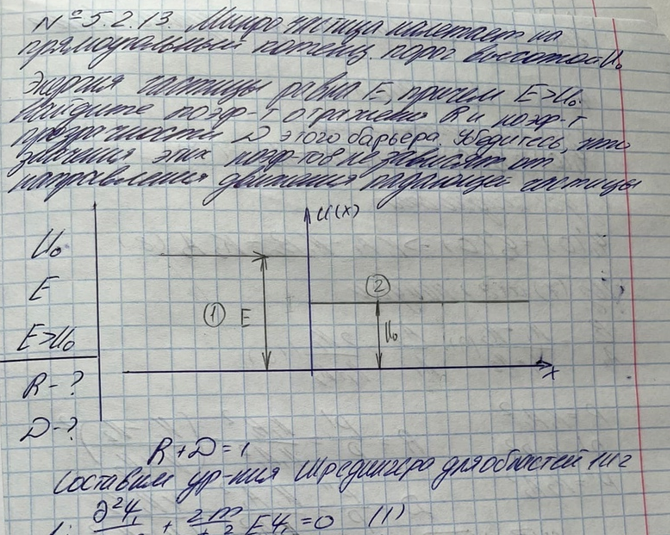 №5.2.13 Микрочастица налетает на
прямоугольный потенц. порог высотой U₀
Энергия частицы равна E, причем E>U₀.
Найдите коэф-т отражения R и коэф-т
прозрачности D этого барьера. Убедитесь, что
значения этих коэф-тов не зависят от
направления движения падающей частицы
U₀
E
E>U₀
R-?
D-?
U(x)
①
E
②
U₀
x
R+D=1
Составим ур-ния Шредингера для областей 1 и 2
∂²Ψ₁ + 2m EΨ₁=0 (1)